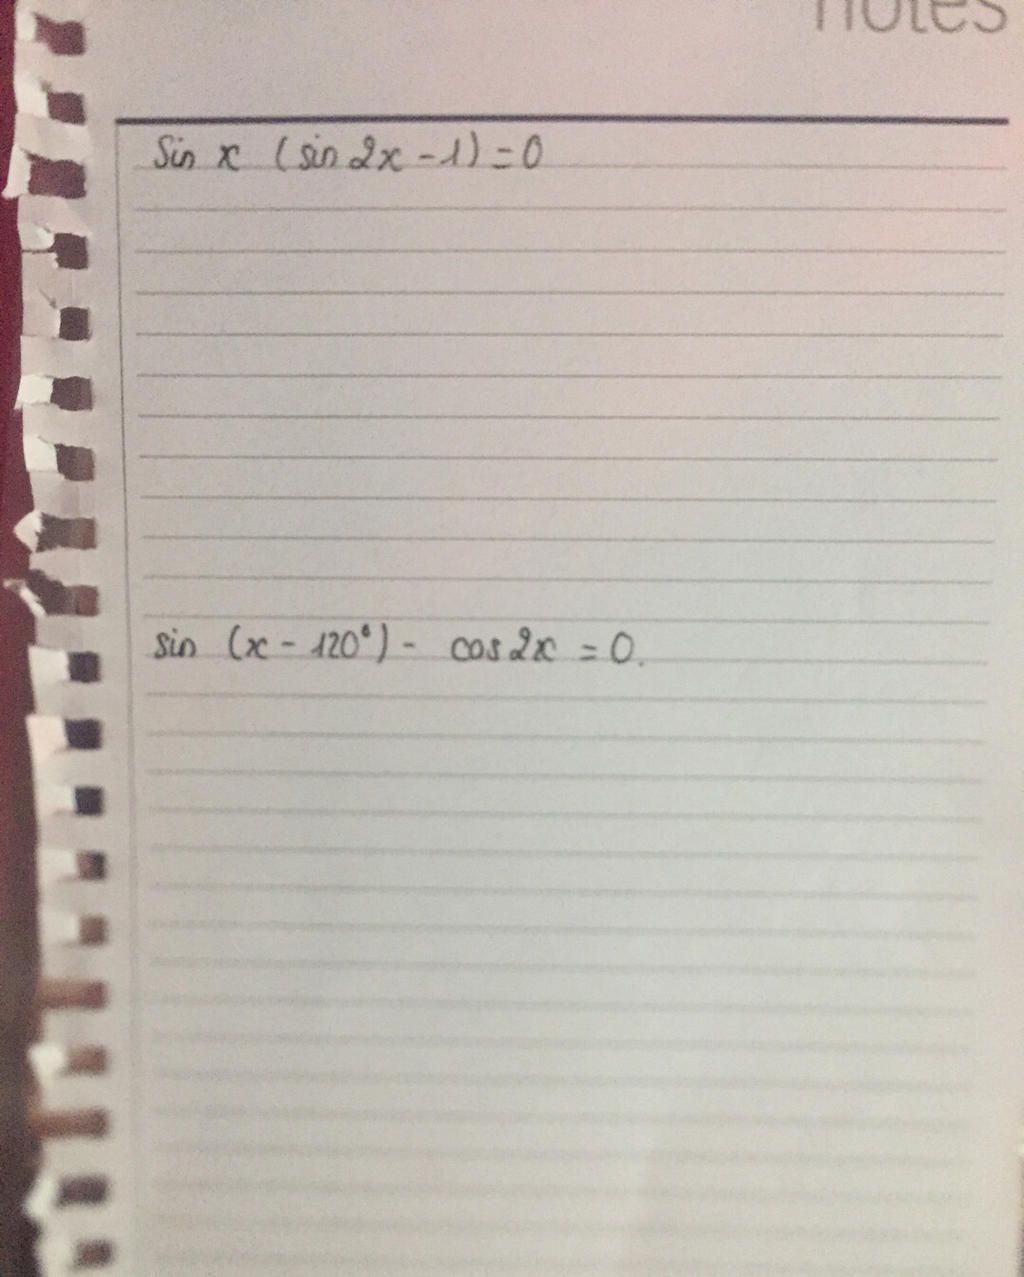 notes
Sin x (sin 2x - 1) = 0
sin (x - 120°) - cos 2x = 0.